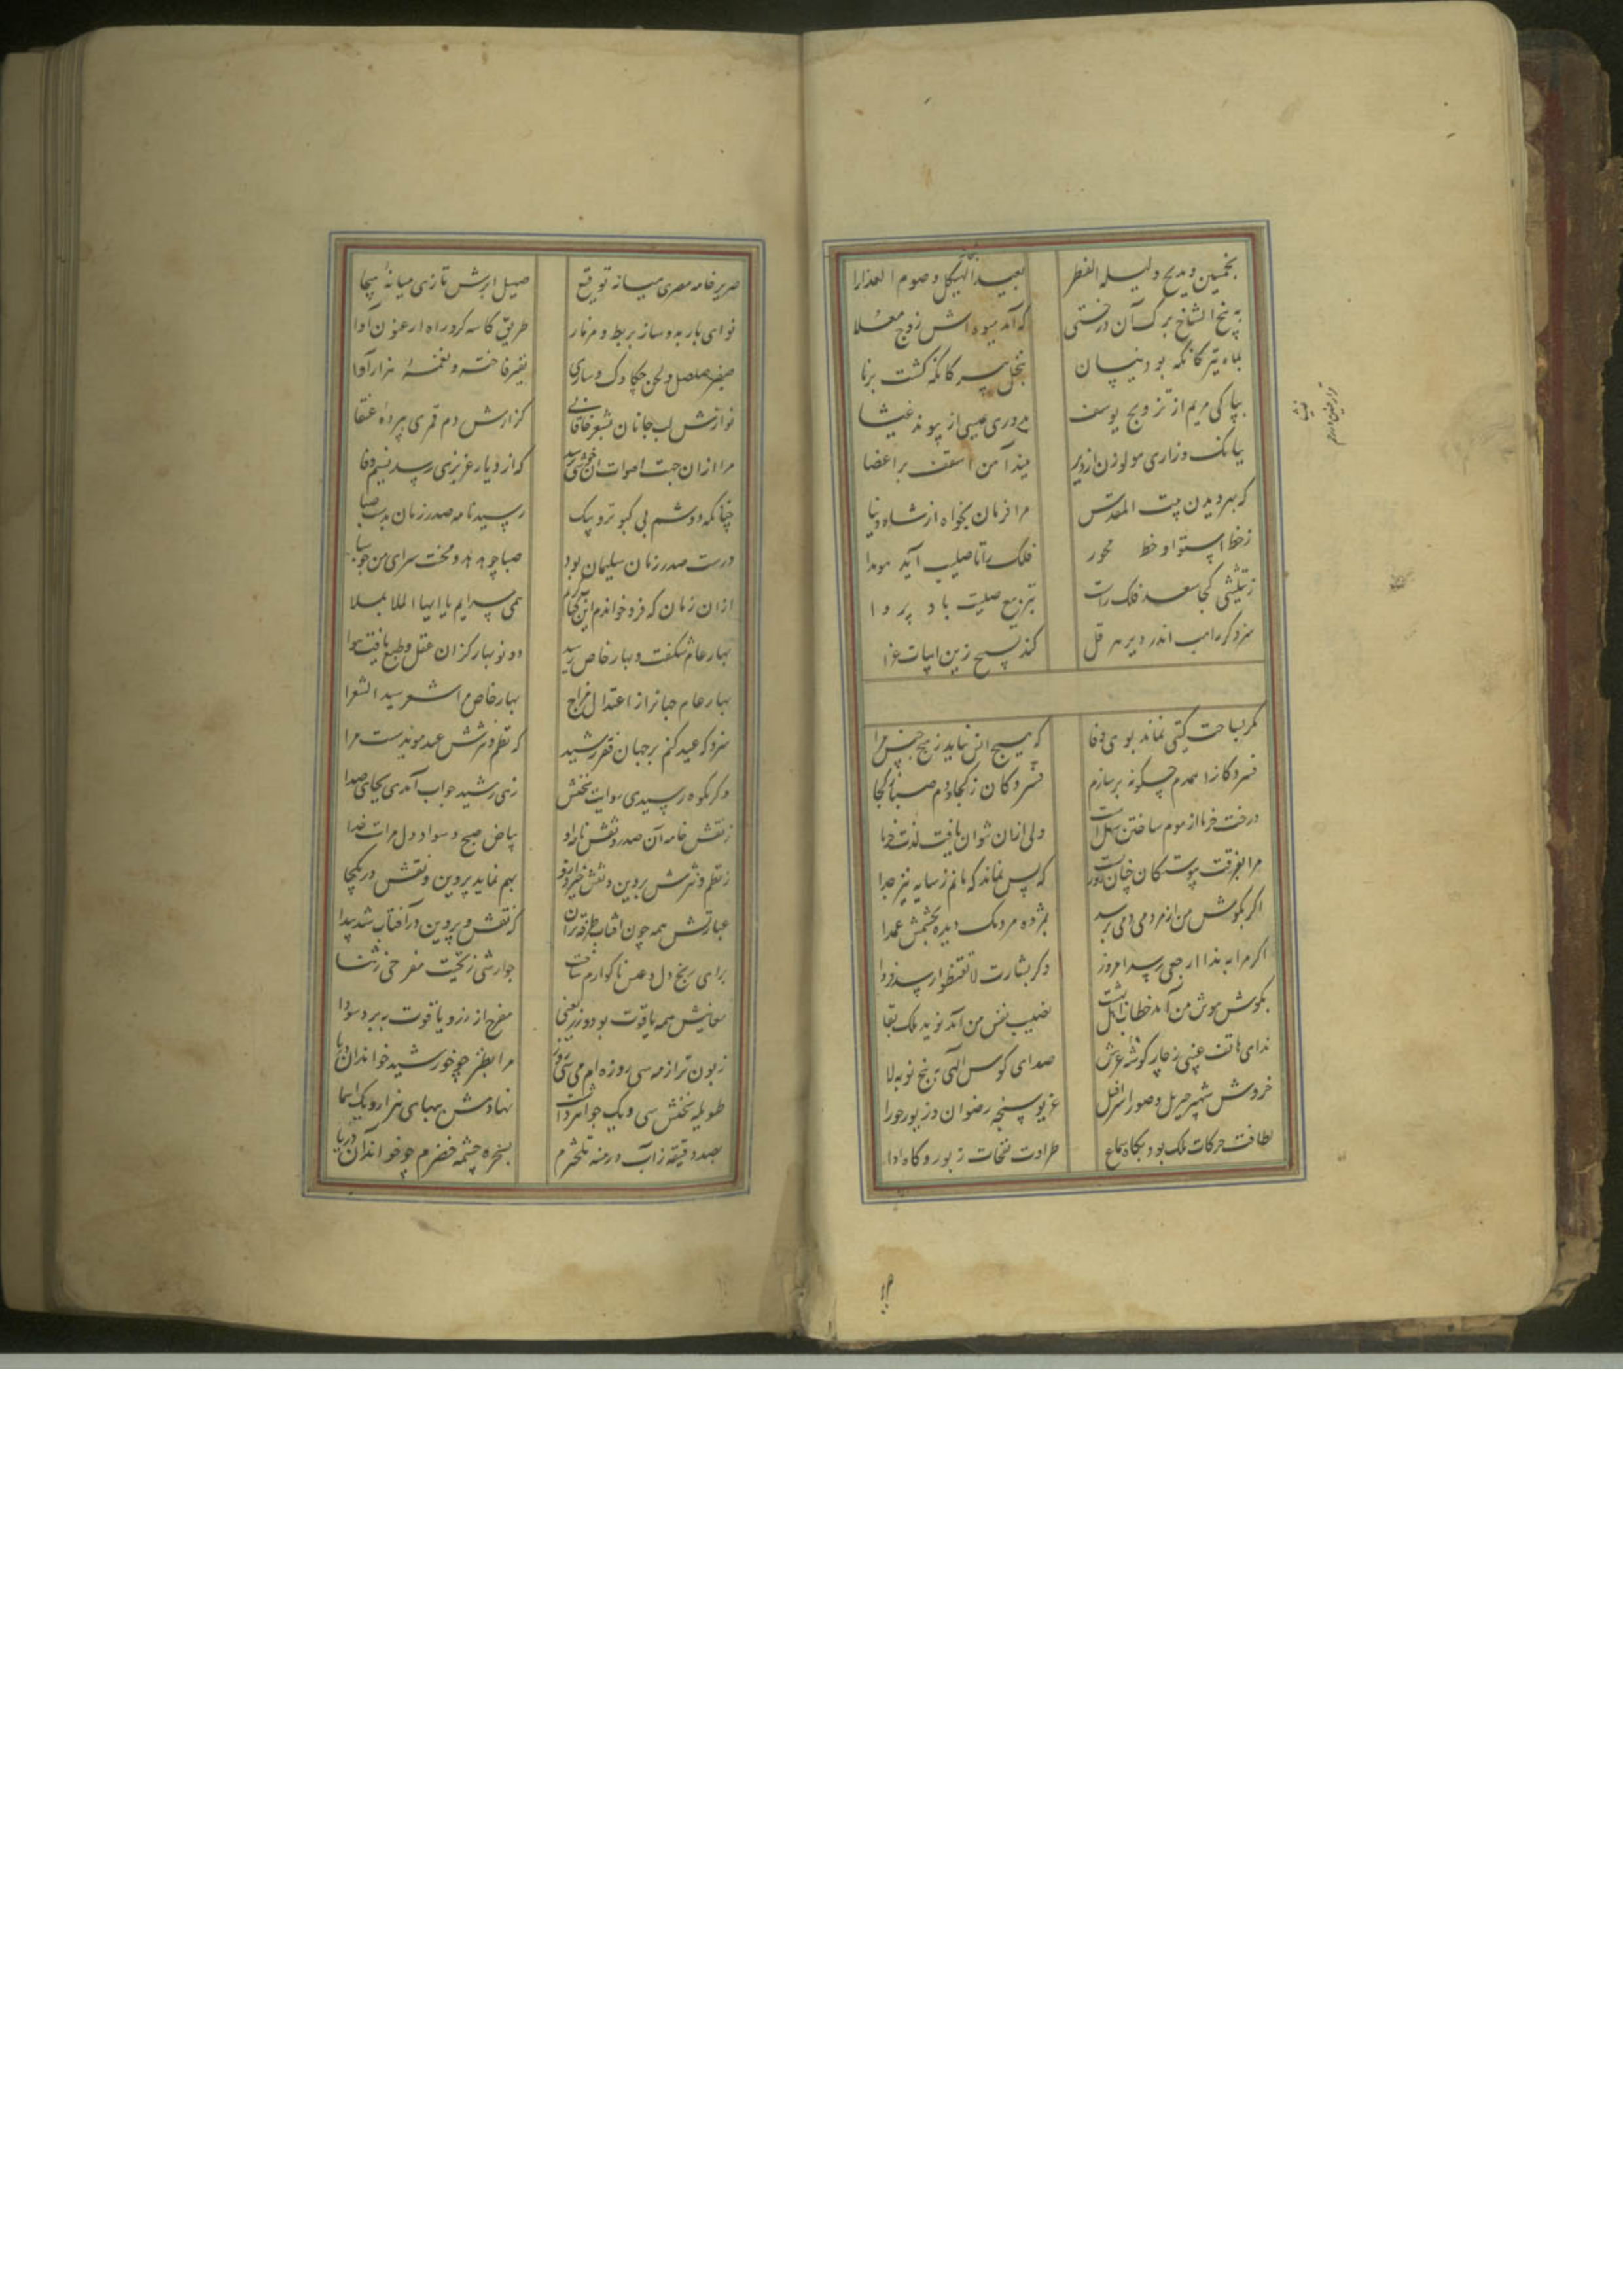 بخمسین و بدنح و لیله الفطر
بعید الهیکل و صوم العذارا
به بیخ و شاخ و برک آن درختی
که آمد میوه اش روح معلا
بماه تیر کانکه بود نیسان
بنخل پیر کانکه کشت برنا
بپاکی مریم از تزویج یوسف
بدوری عیسی از پیوند عیشا
ببانک و زاری مولوزن از دیر
ببند آهن اسقف بر اعضا
که بهر دیدن بیت المقدس
مرا فرمان بخواه از شاه دنیا
ز خط استوا و خط محور
فلک را تا صلیب آید هویدا
ز تثلیثی کجا سعد فلک راست
بتربیع صلیبت باد پروا
سزد کر راهب اندر دیر هرقل
کند تسبیح ازین ابیات غرا
مکر بساحت کیتی نماند بوی وفا
که هیچ انس نیاید ز هیچ جنس مرا
فسردکان را همدم چکونه برسازم
فسردکان ز کجا و دم صفا ز کجا
درخت خرما از موم ساختن سهلست
ولی از آن نتوان یافت لذت خرما
مرا بفرقت پیوستکان چنان روزیست
که بس نماند که مانم ز سایه نیز جدا
اکر بکوش من از مردمی دمی برسد
بمژده مردمک دیده بخشمش عمدا
اکر مرا به ندا ارجعی رسد امروز
وکر بشارت لا تقنطوا رسد فردا
بکوش هوش من آید خطاب اهل بهشت
نصیب نفس من آید نوید ملک بقا
ندای هاتف غیبی ز چار کوشه عرش
صدای کوس الهی به پنج نوبه لا
خروش شهپر جبریل و صور اسرافیل
غریو سبحه رضوان و زیور حورا
لطافت حرکات فلک بود بکاه سماع
طراوت نغمات زبور و کاه ادا
صریر خامه مصری میانه توقیع
صهیل ابرش تازی میانه هیجا
نوای باربد و ساز بربط و مزمار
طریق کاسه کر و راه ارغنون آوا
صفیر صلصل و لحن چکاوک و ساری
نفیر فاخته و نغمه هزار آوا
نوازش لب جانان بشعر خاقانی
کزارش دم قمری بپرده عنقا
مرا از آن جهت اصوات آن خوشی نرسد
که از دیار عزیزی رسید نسیم وفا
چنانکه دوشم بی کبوتر و پیک
رسید نامه صدر زمان بدست صبا
درست صدر زمان سلیمان بود
صبا چو هدهد و محنت سرای من چو سبا
از آن زمان که فرو خواندم این کتاب کریم
همی سرایم یا ایها الملا بملا
بهار عام شکفت و بهار خاص رسید
دو نوبهار کز آن عقل و طبع یافت نوا
بهار عام جهانرا از اعتدال مزاج
بهار خاص مرا شعر سید الشعرا
سزد که عید کنم بر جهان بفر رشید
که نظم و نثرش عید مؤبدست مرا
وکر بکوه رسیدی روایت سخنش
زهی رشید جواب آمدی بجای صدا
ز نقش خامه آن صدر و نقش نامه او
بیاض صبح و سواد دل مراست ضیا
ز نظم و نثرش پروین و نعش خیزد و او
بهم نماید پروین و نعش در یکجا
عبارتش همه چون آفتاب و طرفه تر آن
که نعش و پروین در آفتاب شد پیدا
برای رنج دل و عیش ناکوارم ساخت
جوارشی ز تحیت مفرحی ز ثنا
معانیش همه یاقوت بود و زر یعنی
مفرح از زر و یاقوت به برد سودا
زبون تر از مه سی روزه ام مهی سی روز
مرا بطنز چو خورشید خواند آن جوزا
طویله سخنش سی و یک جواهر داشت
نهادمش ببهای هزار و یک اسما
بصد دقیقه ز آب درمنه تلخترم
بسخره چشمه خضرم چو خواند آن دریا